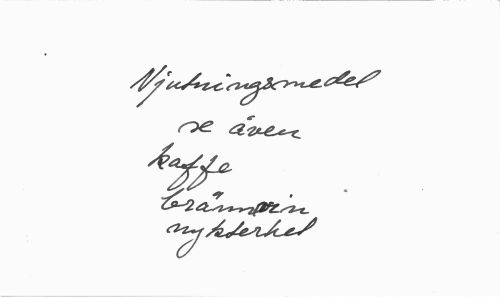 Njutningsmedel
se även
kaffe
brännvin
nykterhet